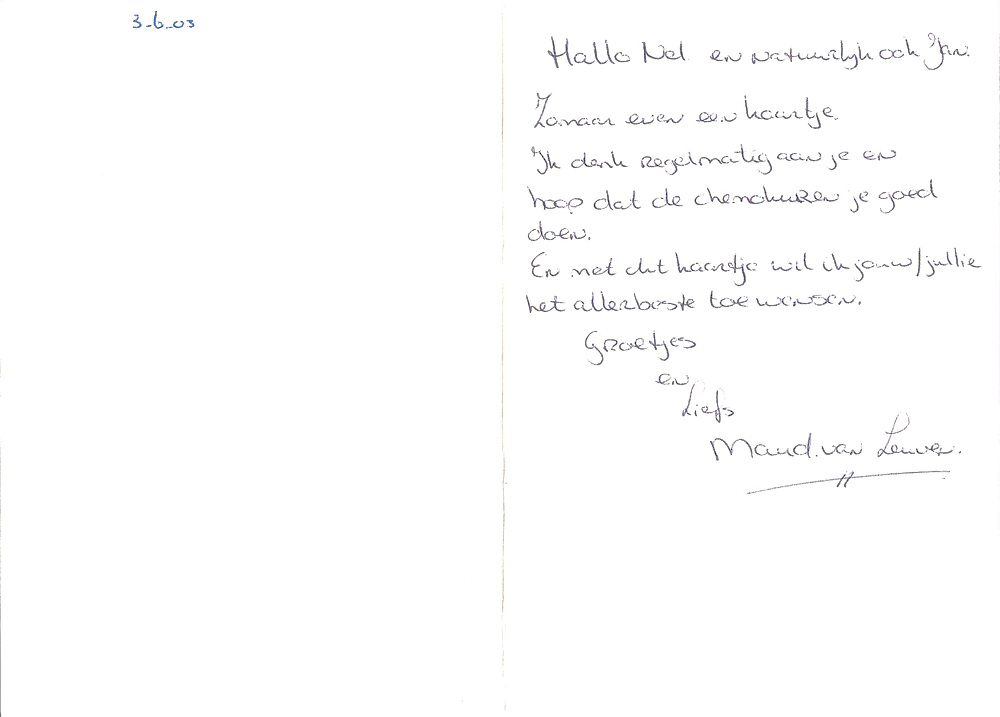 3-6-03
Hallo Nel en natuurlijk ook Jan.
Zomaar even een kaartje.
Ik denk regelmatig aan je en
hoop dat de chemokuren je goed
doen.
En met dit kaartje wil ik jouw/jullie
het allerbeste toe wensen.
Groetjes
en
Liefs
Maud van Leuven.